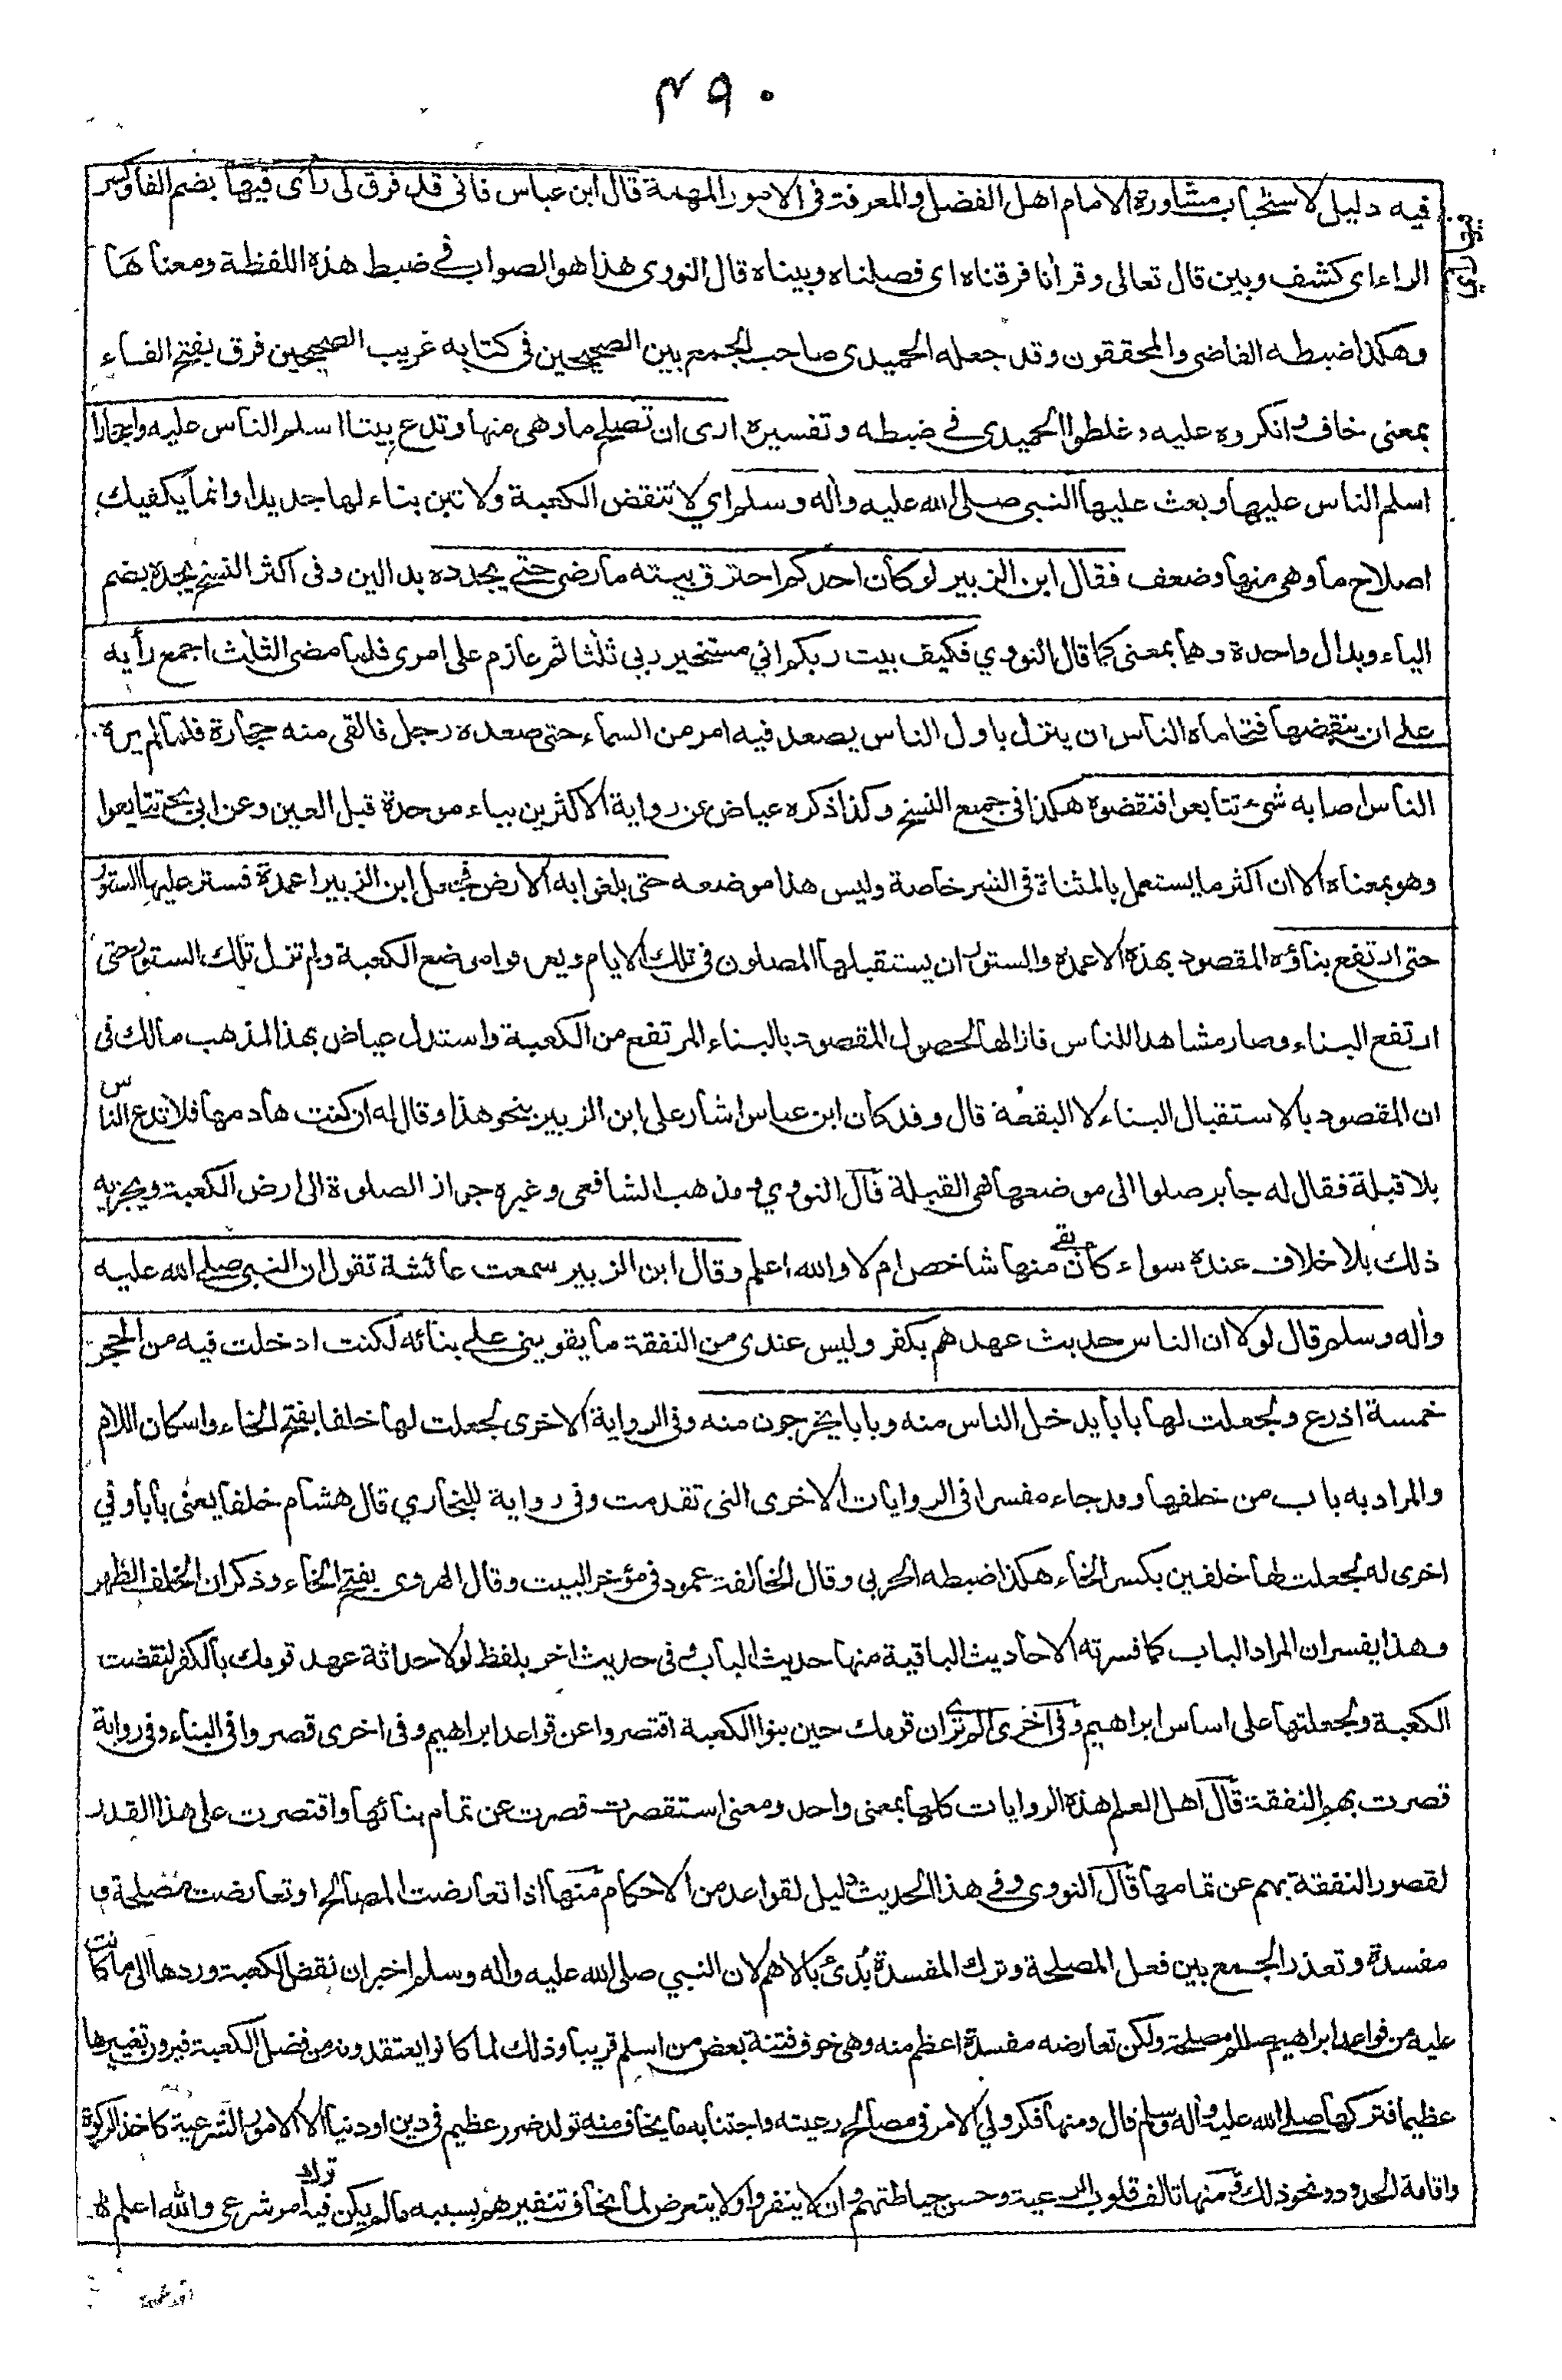 ٤٩٠
فيه دليل لاستحباب مشاورة الامام اهل الفضل والمعرفة فى الامور المهمة قال ابن عباس فانى قد فرق لى رأى فيها بضم الفاء وكسر
الراء اى كشف وبين قال تعالى وقرأنا فرقناه اى فصلناه وبيناه قال النووى هذا هو الصواب في ضبط هذه اللفظة ومعناها
وهكذا ضبطه القاضى والمحققون وقد جعله الحميدى صاحب الجمع بين الصحيحين فى كتابه غريب الصحيحين فرق بفتح الفاء
بمعنى خاف وانكروه عليه وغلطوا الحميدى في ضبطه وتفسيره ارى ان تصلح ما وهى منها وتدع بيتا اسلم الناس عليه واحجارا
اسلم الناس عليها وبعث عليها النبى صلى الله عليه وأله وسلم اي لا تنقض الكعبة ولا تبن بناء لها جديدا وانما يكفيك
اصلاح ما وهى منها وضعف فقال ابن الزبير لو كان احدكم احترق بيته ما رضى حتى يجدده بدالين وفى اكثر النسخ يجده بضم
الياء وبدال واحدة وهما بمعنى كما قال النووي فكيف بيت ربكم اني مستخير ربى ثلثا ثم عازم على امرى فلما مضى الثلث اجمع رأيه
على ان ينقضها فتحاماه الناس ان ينزل باول الناس يصعد فيه امر من السماء حتى صعده رجل فالقى منه حجارة فلما لم يره
الناس اصابه شىء تتابعوا فنقضوه هكذا فى جميع النسخ وكذا ذكره عياض عن رواية الاكثرين بباء موحدة قبل العين وعن ابى بحر تتايعوا
وهو بمعناه الا ان اكثر ما يستعمل بالمثناة فى الشر خاصة وليس هذا موضعه حتى بلغوا به الارض فجعل ابن الزبير اعمدة فستر عليها الستور
حتى ارتفع بناؤه المقصود بهذه الاعمدة والستور ان يستقبلها المصلون فى تلك الايام ويعرفوا موضع الكعبة ولم تزل تلك الستور حتى
ارتفع البناء وصار مشاهدا للناس فازالها لحصول المقصود بالبناء المرتفع من الكعبة واستدل عياض بهذا لمذهب مالك فى
ان المقصود بالاستقبال البناء لا البقعة قال وقد كان ابن عباس اشار على ابن الزبير بنحو هذا وقال له ان كنت هادمها فلا تدع الناس
بلا قبلة فقال له جابر صلوا الى موضعها فهى القبلة قال النووي ومذهب الشافعى وغيره جواز الصلوة الى ارض الكعبة ويجزيه
ذلك بلا خلاف عنده سواء كان بقى منها شاخص ام لا والله اعلم وقال ابن الزبير سمعت عائشة تقول ان النبى صلى الله عليه
وأله وسلم قال لولا ان الناس حديث عهدهم بكفر وليس عندى من النفقة ما يقوينى على بنائه لكنت ادخلت فيه من الحجر
خمسة اذرع ولجعلت لها بابا يدخل الناس منه وبابا يخرجون منه وفى الرواية الاخرى لجعلت لها خلفا بفتح الخاء واسكان اللام
والمراد به باب من خلفها وقد جاء مفسرا فى الروايات الاخرى التى تقدمت وفى رواية للبخاري قال هشام خلفا يعنى بابا وفي
اخرى له لجعلت لها خلفين بكسر الخاء هكذا ضبطه الحربي وقال الخالفة عمود فى مؤخر البيت وقال الهروى بفتح الخاء وذكر ان الخلف الظهر
وهذا يفسر ان المراد الباب كما فسرته الاحاديث الباقية منها حديث الباب وفى حديث اخر بلفظ لولا حداثة عهد قومك بالكفر لنقضت
الكعبة ولجعلتها على اساس ابراهيم وفى اخرى الم ترى ان قومك حين بنوا الكعبة اقتصروا عن قواعد ابراهيم وفى اخرى قصروا فى البناء وفى رواية
قصرت بهم النفقة قال اهل العلم هذه الروايات كلها بمعنى واحد ومعنى استقصرت قصرت عن تمام بنائها واقتصرت على هذا القدر
لقصور النفقة بهم عن تمامها قال النووى وفى هذا الحديث دليل لقواعد من الاحكام منها اذا تعارضت المصالح او تعارضت مصلحة و
مفسدة وتعذر الجمع بين فعل المصلحة وترك المفسدة بدئ بالاهم لان النبي صلى الله عليه وأله وسلم اخبر ان نقض الكعبة وردها الى ما كانت
عليه من قواعد ابراهيم صللم مصلحة ولكن تعارضه مفسدة اعظم منه وهى خوف فتنة بعض من اسلم قريبا وذلك لما كانوا يعتقدونه من فضل الكعبة فيرون تغييرها
عظيما فتركها صلى الله عليه وأله وسلم قال ومنها فكر ولي الامر فى مصالح رعيته واجتنابه ما يخاف منه تولد ضرر عظيم فى دين او دنيا الا الامور الشرعية كاخذ الزكوة
واقامة الحدود ونحو ذلك ومنها تالف قلوب الرعية وحسن حياطتهم وان لا ينفروا ولا يتعرض لما يخاف تنفيرهم بسببه مالم يكن فيه ترك امر شرعى والله اعلم